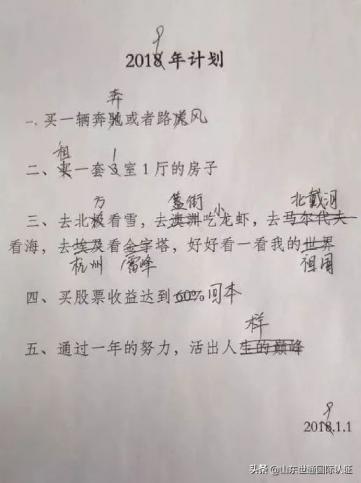 9
2018年计划
奔
一、买一辆奔驰或者路虎风
租 1
二、买一套3室1厅的房子
方 簋街 小 北戴河
三、去北极看雪，去澳洲吃龙虾，去马尔代夫
看海，去埃及看金字塔，好好看一看我的世界
杭州 雷峰 祖国
四、买股票收益达到60%回本
样
五、通过一年的努力，活出人生的巅峰
9
2018.1.1
头条 @山东世通国际认证